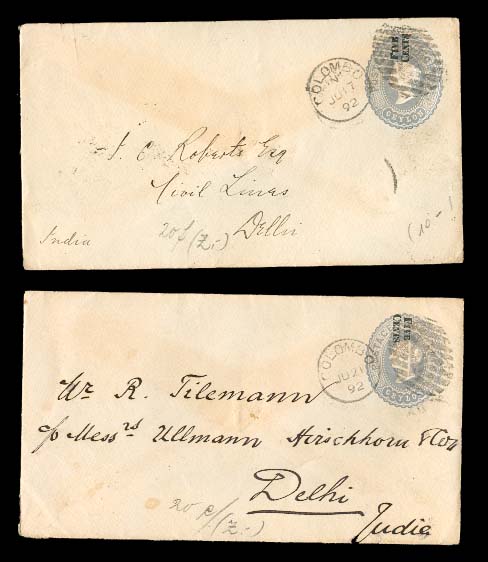 COLOMBO
JU 17
92
FIVE
CENTS
POSTAGE
CEYLON
J. C. Roberts Esq
Civil Lines
Delhi
India
20 (Z.-)
(10-)
COLOMBO
JU 21
92
FIVE
CENTS
CEYLON
Mr R. Tilemann
c/o Messrs Ullmann Hirschhorn & Coy
Delhi
India
20 (Z.-)